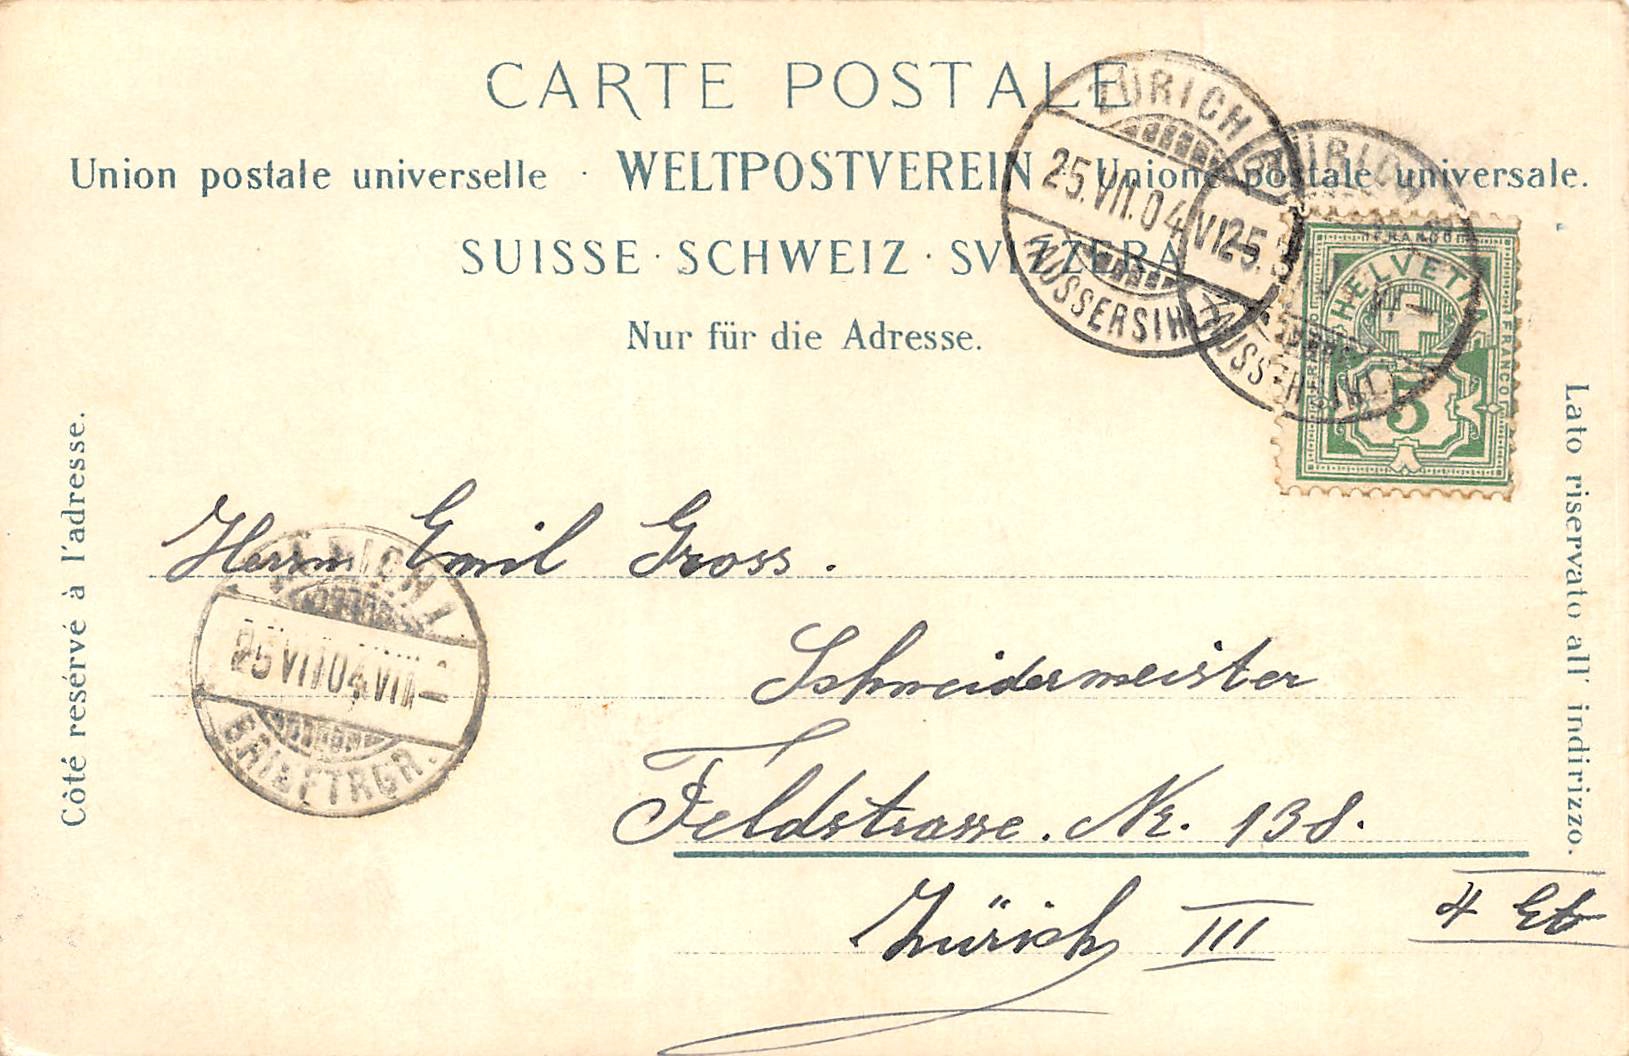 CARTE POSTALE
Union postale universelle · WELTPOSTVEREIN · Unione postale universale.
SUISSE · SCHWEIZ · SVIZZERA
Nur für die Adresse.
Côté reservé à l'adresse.
Lato riservato all' indirizzo.
ZÜRICH
25.VII.04 VII–
AUSSERSIHL
ZÜRICH
25.
AUSSERSIHL
FRANCO
HELVETIA
FRANCO
FRANCO
5
Herrn Emil Gross.
Schneidermeister
Feldstrasse. Nr. 138.
Zürich III
4 Et
ZÜRICH 1
25 VII 04 VIII–
BRIEFTRGR.